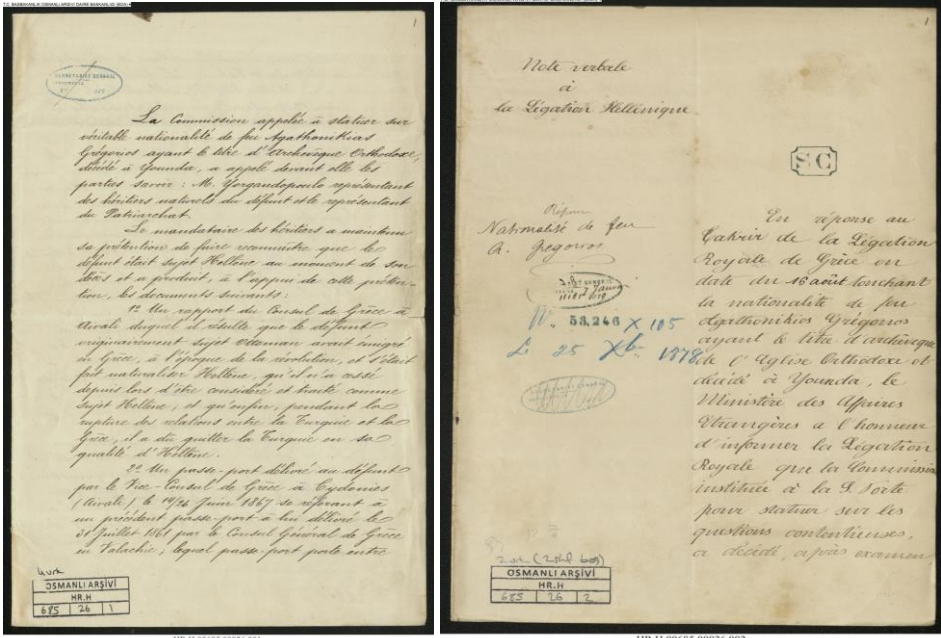 T.C. BAŞBAKANLIK OSMANLI ARŞİVİ DAİRE BAŞKANLIĞI (BOA)
1
SECRÉTARIAT GÉNÉRAL
La Commission appelée à statuer sur
véritable nationalité de feu Agathonikias
Grégorios ayant le titre d'Archevêque Orthodoxe,
décédé à Younda, a appelé devant elle les
parties savoir : M. Yorgandopoulo représentant
des héritiers naturels du défunt et le représentant
du Patriarchat.
Le mandataire des héritiers a maintenu
sa prétention de faire reconnaître que le
défunt était sujet Hellène au moment de son
décès et a produit, à l'appui de cette préten-
tion, les documents suivants :
1º Un rapport du Consul de Grèce à
Aivali duquel il résulte que le défunt
originairement sujet Ottoman avait émigré
en Grèce, à l'époque de la révolution, et s'était
fait naturaliser Hellène, qu'il n'a cessé
depuis lors d'être considéré et traité comme
sujet Hellène, et qu'enfin, pendant la
rupture des relations entre la Turquie et la
Grèce, il a du quitter la Turquie en sa
qualité d'Hellène.
2º Un passe-port délivré au défunt
par le Vice-Consul de Grèce à Cydonies
(Aivali) le 14/26 Juin 1867 se référant à
un précédent passe-port à lui délivré le
31 Juillet 1861 par le Consul Général de Grèce
en Valachie; lequel passe-port porte entre
OSMANLI ARŞİVİ
HR.H
685 26 1
1
Note verbale
à
la Légation Hellénique
Nationalité de feu
A. Gregorios
Nº. 53,246 X 105
L 25 Xb 1878
SC
En réponse au
Takrir de la Légation
Royale de Grèce en
date du 16 août touchant
la nationalité de feu
Agathonikios Grégorios
ayant le titre d'archevêque
de l'Eglise Orthodoxe et
décédé à Younda, le
Ministère des Affaires
Etrangères a l'honneur
d'informer la Légation
Royale que la Commission
instituée à la S. Porte
pour statuer sur les
questions contentieuses,
a décidé, après examen
OSMANLI ARŞİVİ
HR.H
685 26 2